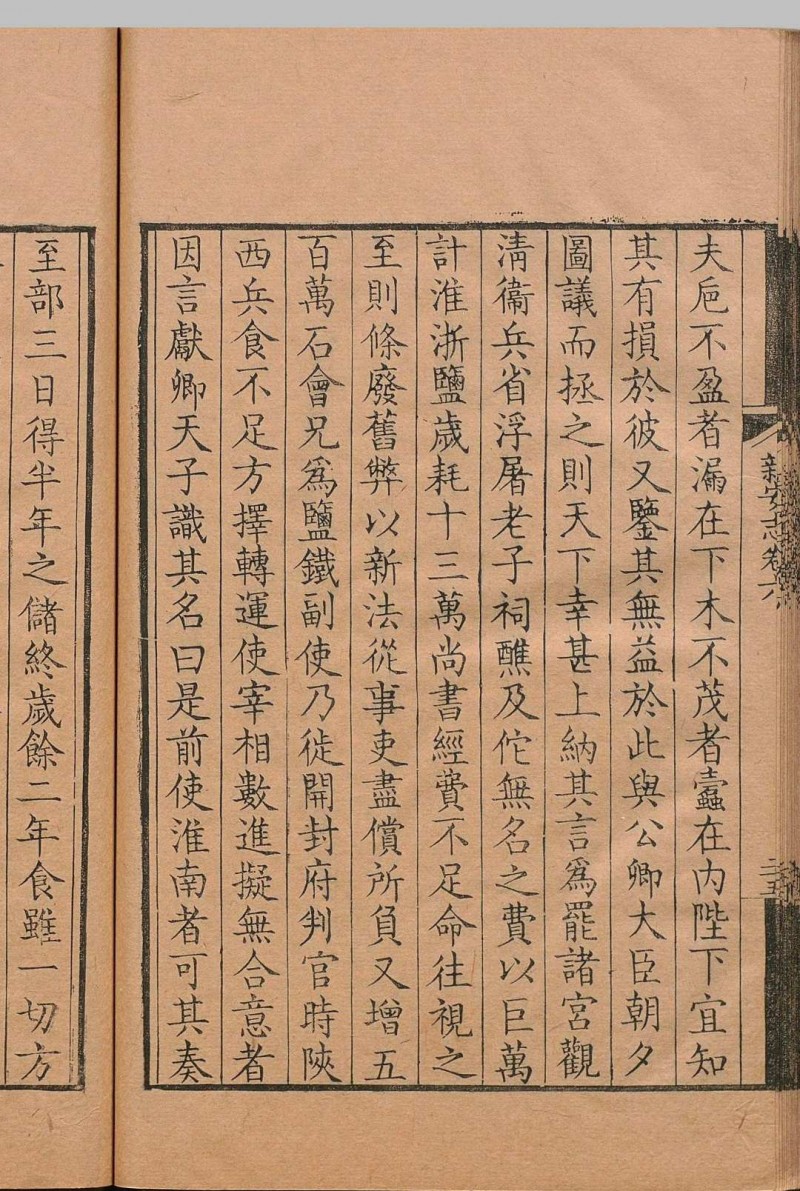 新安志卷六
夫巵不盈者漏在下木不茂者蠹在内陛下宜知
其有損於彼又鑒其無益於此與公卿大臣朝夕
圖議而拯之則天下幸甚上納其言爲罷諸宮觀
淸衞兵省浮屠老子祠醮及佗無名之費以巨萬
計淮浙鹽歲耗十三萬尚書經費不足命往視之
至則條廢舊弊以新法從事吏盡償所負又增五
百萬石會兄爲鹽鐵副使乃徙開封府判官時陝
西兵食不足方擇轉運使宰相數進擬無合意者
因言獻卿天子識其名曰是前使淮南者可其奏
至部三日得半年之儲終歲餘二年食雖一切方